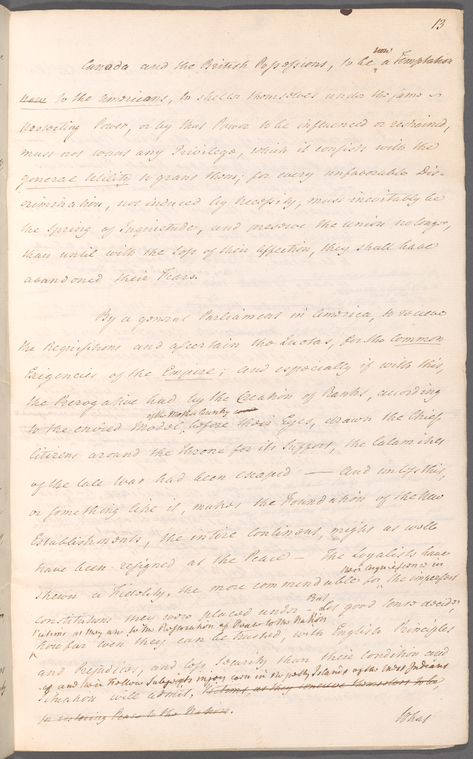 13
now
Canada and the British Possessions, to be a Temptation
to the Americans, to shelter themselves under the same
protecting Power, or by that Power to be influenced or restrained,
must not want any Privilege, which it consists with the
general Utility to grant them; for every unfavorable Dis-
crimination, not induced by Necessity, must inevitably be
the Spring of Inquietude, and preserve the union no longer,
than until with the Loss of their Affection, they shall have
abandoned their Fears.
By a general Parliament in America, to receive
the Requisitions and ascertain the Quotas, for the Common
Exigencies of the Empire; and especially if with this,
the Prerogative had by the Creation of Ranks, according
of the Mother Country
to the envied Model before their Eyes, drawn the Chief
Citizens around the Throne for its Support, the Calamities
of the late War had been escaped — and unless this,
or something like it, makes the Foundation of the New
Establishments, the entire Continent, might as well
have been resigned at the Peace — The Loyalists have
shewn a Fidelity, the more commendable for the imperfect
But
Constitutions they were placed under — let good Sense decide,
Victims as they are to the Restoration of Peace to the Nation
how far even they can be trusted, with English Principles
and Prejudices, and less Security than their Condition and
of and their Fellow Subjects enjoy even in the petty Islands of the West Indies
Situation will admit, Victims, as they conceive themselves to be,
for restoring Peace to the Nation.
What